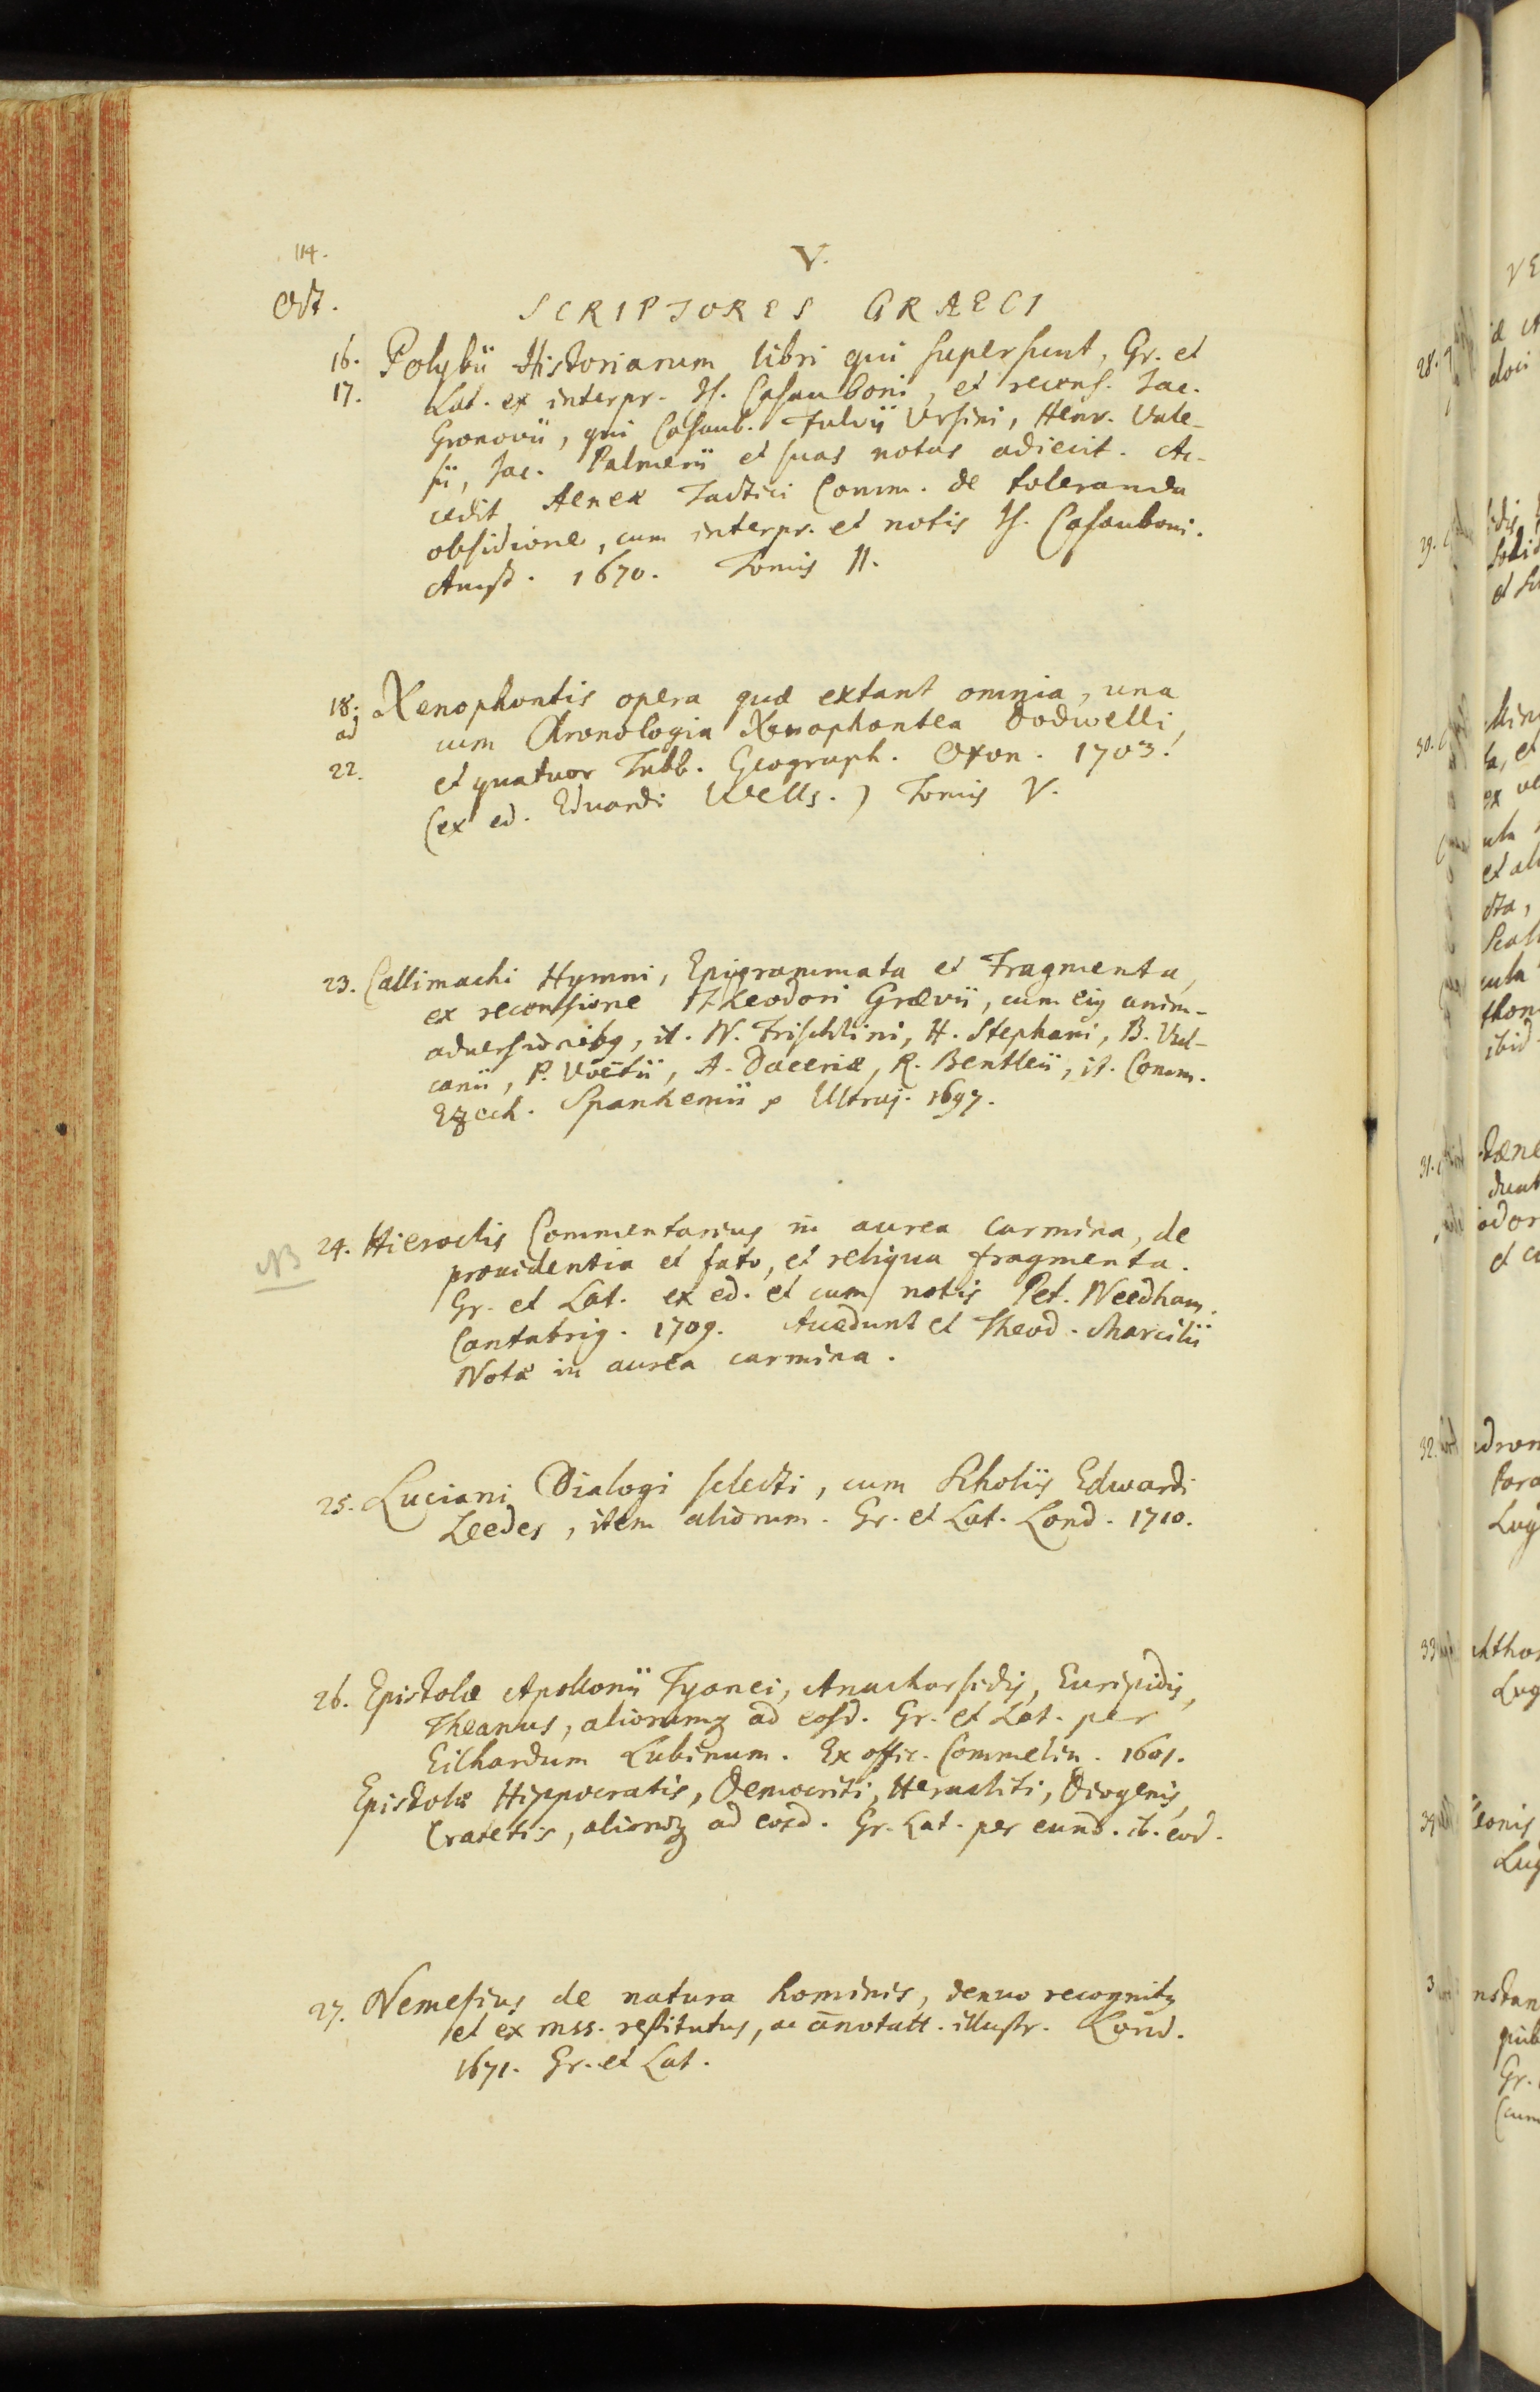 114.
V.
Oct.
SCRIPTORES GRAECI
16. Polybii Historiarum libri qui supersunt, Gr. et
17. Lat. ex interpr. Is. Casauboni, et recens. Jac.
Gronovii, qui Casaub. Fulvii Ursini, Henr. Vale-
sii, Jac. Palmerii et suas notas adiecit. Ac-
cedit Aeneæ Tactici Comm. de toleranda
obsidione, cum interpr. et notis Is. Casauboni.
Amst. 1670. Tomis II.
18. Xenophontis opera quæ extant omnia, una
ad cum Chronologia Xenophontea Dodwelli,
22. et quatuor Tabb. Geograph. Oxon. 1703.
(ex ed. Eduardi Wells.) Tomis V.
23. Callimachi Hymni, Epigrammata et Fragmenta,
ex recensione Theodori Grævii, cum eiꝰ anim-
aduersionibꝫ, it. N. Frischlini, H. Stephani, B. Vul-
canii, P. Voëtii, A. Daceriæ, R. Bentleii, it. Comm.
Ezech. Spanhemii. Ultraj. 1697.
NB
24. Hieroclis Commentarius in aurea carmina, de
prouidentia et fato, et reliqua fragmenta.
Gr. et Lat. ex ed. et cum notis Pet. Needham.
Cantabrig. 1709. Accedunt et Theod. Marcilii
Notæ in aurea carmina.
25. Luciani Dialogi selecti, cum Scholiis Edwardi
Leedes, item aliorum. Gr. et Lat. Lond. 1710.
26. Epistolæ Apollonii Tyanei, Anacharsidis, Euripidis,
Theanus, aliorumqꝫ ad eosd. Gr. et Lat. per
Eilhardum Lubinum. Ex offic. Commelin. 1601.
Epistolæ Hippocratis, Democriti, Heracliti, Diogenis,
Cratetis, aliorumqꝫ ad eosd. Gr. Lat. per eund. ib. eod.
27. Nemesius de natura hominis, denuo recognitꝰ
et ex mss. restitutus, ac añotatt. illustr. Lond.
1671. Gr. et Lat.